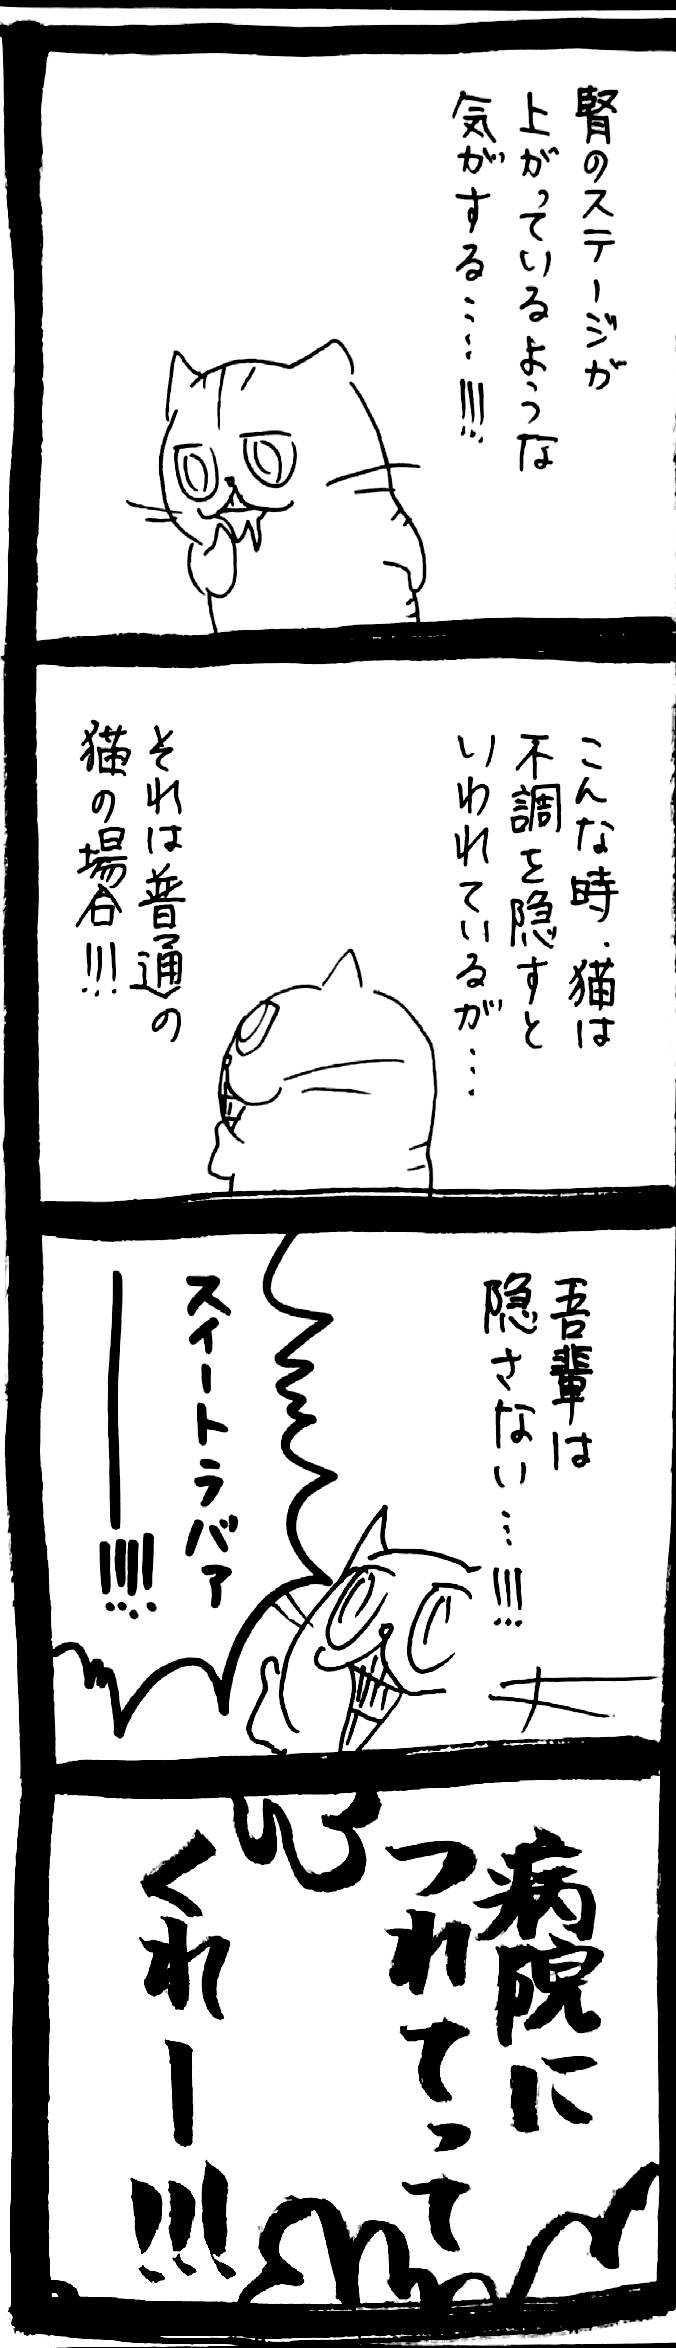 腎のステージが
上がっているような
気がする……!!!
こんな時、猫は
不調を隠すと
いわれているが…
それは普通の
猫の場合!!!
吾輩は
隠さない…!!!
スイートラバァ
――!!!!!
病院に
つれてって
くれー!!!